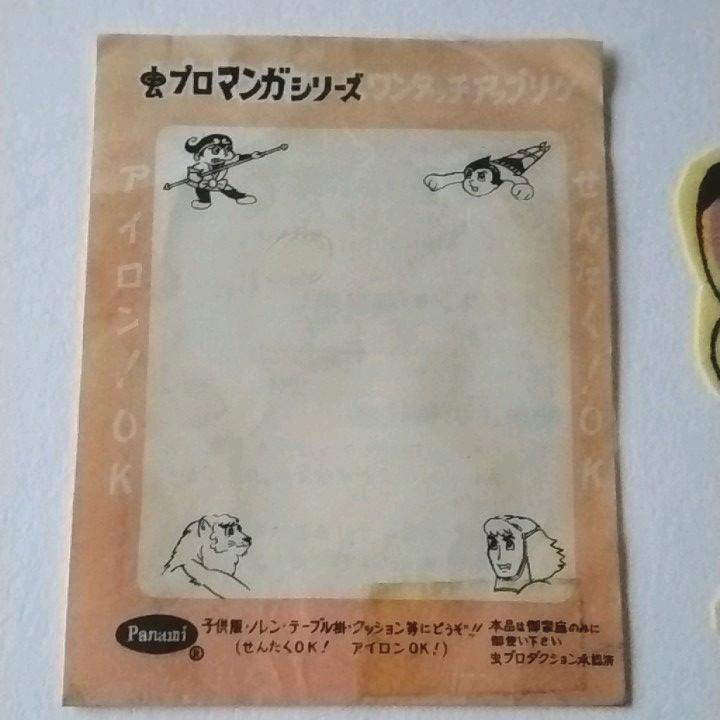 虫プロマンガシリーズ ワンタッチアップリケ
アイロン!OK
せんたく!OK
Panami ®
子供服・ノレン・テーブル掛・クッション等にどうぞ!!
(せんたくOK! アイロンOK!)
本品は御家庭のみに
御使い下さい
虫プロダクション承認済